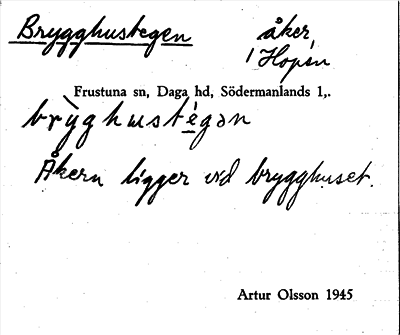 Brygghustegen åker,
i Hopön
Frustuna sn, Daga hd, Södermanlands l,.
brỳghustégən
Åkern ligger vid brygghuset.
Artur Olsson 1945